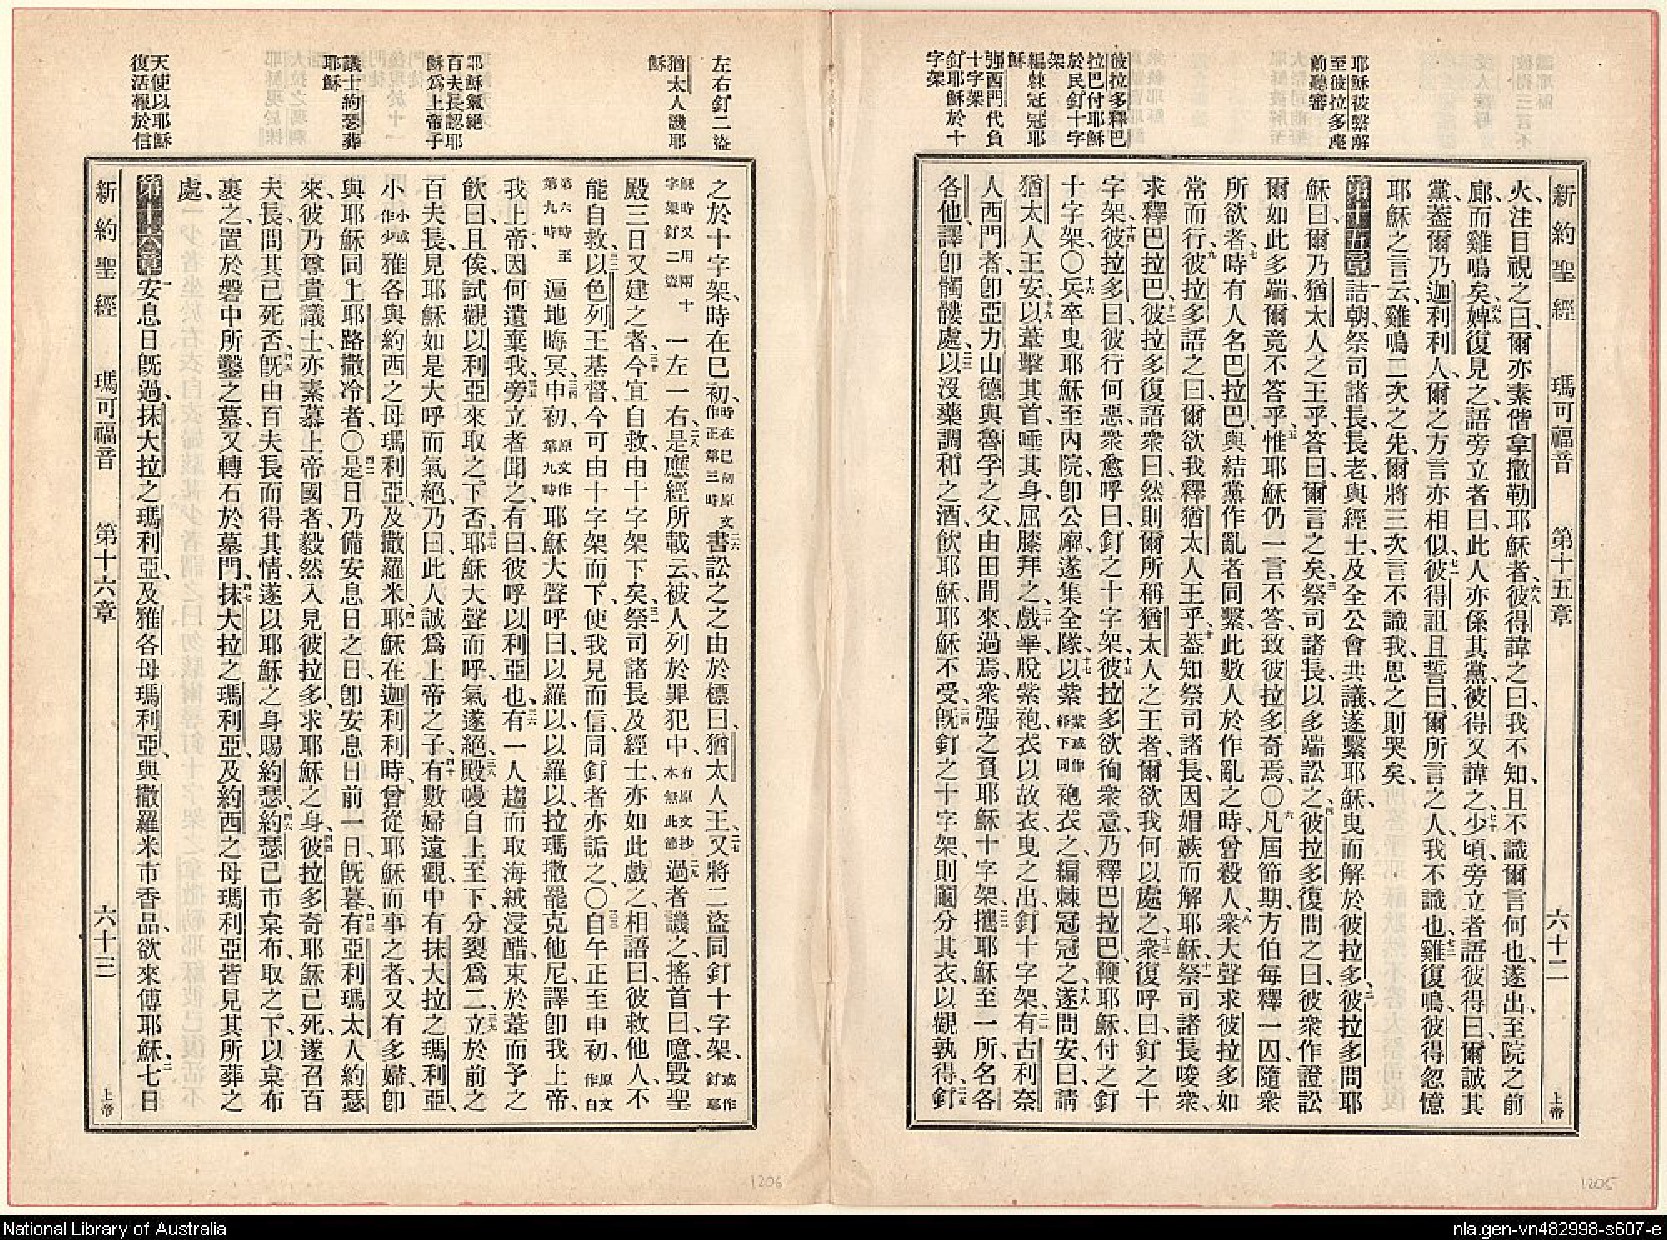 耶穌被繫解
至彼拉多處
前聽審
彼拉多釋巴
拉巴付耶穌
於民釘十字
架
編棘冠冠耶
穌
強西門代負
十字架
釘耶穌於十
字架
新約聖經 瑪可福音 第十五章 六十二 上帝
火、注目視之曰、爾亦素偕拿撒勒耶穌者、彼得諱之曰、我不知、且不識爾言何也、遂出、至院之前
廊而雞鳴矣、婢復見之、語旁立者曰、此人亦係其黨、彼得又諱之、少頃、旁立者語彼得曰、爾誠其
黨、蓋爾乃迦利利人、爾之方言亦相似、彼得詛且誓曰、爾所言之人、我不識也、雞復鳴、彼得忽憶
耶穌之言云、雞鳴二次之先、爾將三次言不識我、思之則哭矣、
第十五章 詰朝、祭司諸長、長老、與經士、及全公會共議、遂繫耶穌、曳而解於彼拉多、彼拉多問耶
穌曰、爾乃猶太人之王乎、答曰、爾言之矣、祭司諸長、以多端訟之、彼拉多復問之曰、彼衆作證訟
爾如此多端、爾竟不答乎、惟耶穌仍一言不答、致彼拉多奇焉、〇凡屆節期、方伯每釋一囚、隨衆
所欲者、時有人名巴拉巴、與結黨作亂者同繫、此數人於作亂之時、曾殺人、衆大聲求彼拉多如
常而行、彼拉多語之曰、爾欲我釋猶太人王乎、蓋知祭司諸長、因媢嫉而解耶穌、祭司諸長唆衆、
求釋巴拉巴、彼拉多復語衆曰、然則爾所稱猶太人之王者、爾欲我何以處之、衆復呼曰、釘之十
字架、彼拉多曰、彼行何惡、衆愈呼曰、釘之十字架、彼拉多欲徇衆意、乃釋巴拉巴、鞭耶穌、付之釘
十字架、〇兵卒曳耶穌至內院、卽公廨、遂集全隊、以紫紫或作絳下同袍衣之、編棘冠冠之、遂問安曰、請
猶太人王安、以葦擊其首、唾其身、屈膝拜之、戲畢、脫紫袍、衣以故衣、曳之出、釘十字架、有古利奈
人西門者、卽亞力山德與魯孚之父、由田間來、過焉、衆强之負耶穌十字架、攜耶穌至一所、名各
各他、譯卽髑髏處、以沒藥調和之酒、飲耶穌、耶穌不受、旣釘之十字架、則鬮分其衣、以觀孰得、釘
左右釘二盜
猶太人譏耶
穌
耶穌氣絕
百夫長認耶
穌爲上帝子
議士約瑟葬
耶穌
天使以耶穌
復活報於信
之於十字架、時在巳初、時在巳初原文作正第三時書訟之之由於標曰、猶太人王、又將二盜同釘十字架、或作釘耶
穌時又用兩十字架釘二盜一左一右、是應經所載云、被人列於罪犯中、有原文抄本無此節過者譏之、搖首曰、噫、毀聖
殿三日又建之者、今宜自救、由十字架下矣、祭司諸長及經士、亦如此戲之、相語曰、彼救他人、不
能自救、以色列王基督、今可由十字架而下、使我見而信、同釘者亦詬之、〇自午正至申初、原文作自
第六時至第九時遍地晦冥、申初、原文作第九時耶穌大聲呼曰、以羅以、以羅以、拉瑪撒罷克他尼、譯卽我上帝、
我上帝、因何遺棄我、旁立者聞之、有曰、彼呼以利亞也、有一人趨而取海絨浸醋、束於葦而予之
飲曰、且俟、試觀以利亞來取之下否、耶穌大聲而呼、氣遂絕、殿幔自上至下、分裂爲二、立於前之
百夫長、見耶穌如是大呼而氣絕、乃曰、此人誠爲上帝之子、有數婦遠觀、中有抹大拉之瑪利亞、
小小或作少雅各與約西之母瑪利亞、及撒羅米、耶穌在迦利利時、曾從耶穌而事之者、又有多婦、卽
與耶穌同上耶路撒冷者、〇是日乃備安息日之日、卽安息日前一日、旣暮、有亞利瑪太人約瑟
來、彼乃尊貴議士、亦素慕上帝國者、毅然入見彼拉多、求耶穌之身、彼拉多奇耶穌已死、遂召百
夫長、問其已死否、旣由百夫長而得其情、遂以耶穌之身賜約瑟、約瑟已市枲布、取之下、以枲布
裹之、置於磐中所鑿之墓、又轉石於墓門、抹大拉之瑪利亞、及約西之母瑪利亞、皆見其所葬之
處、
第十六章 安息日旣過、抹大拉之瑪利亞、及雅各母瑪利亞、與撒羅米市香品、欲來傅耶穌、七日
新約聖經 瑪可福音 第十六章 六十三 上帝
1206
1205
National Library of Australia
nla.gen-vn482998-s607-e